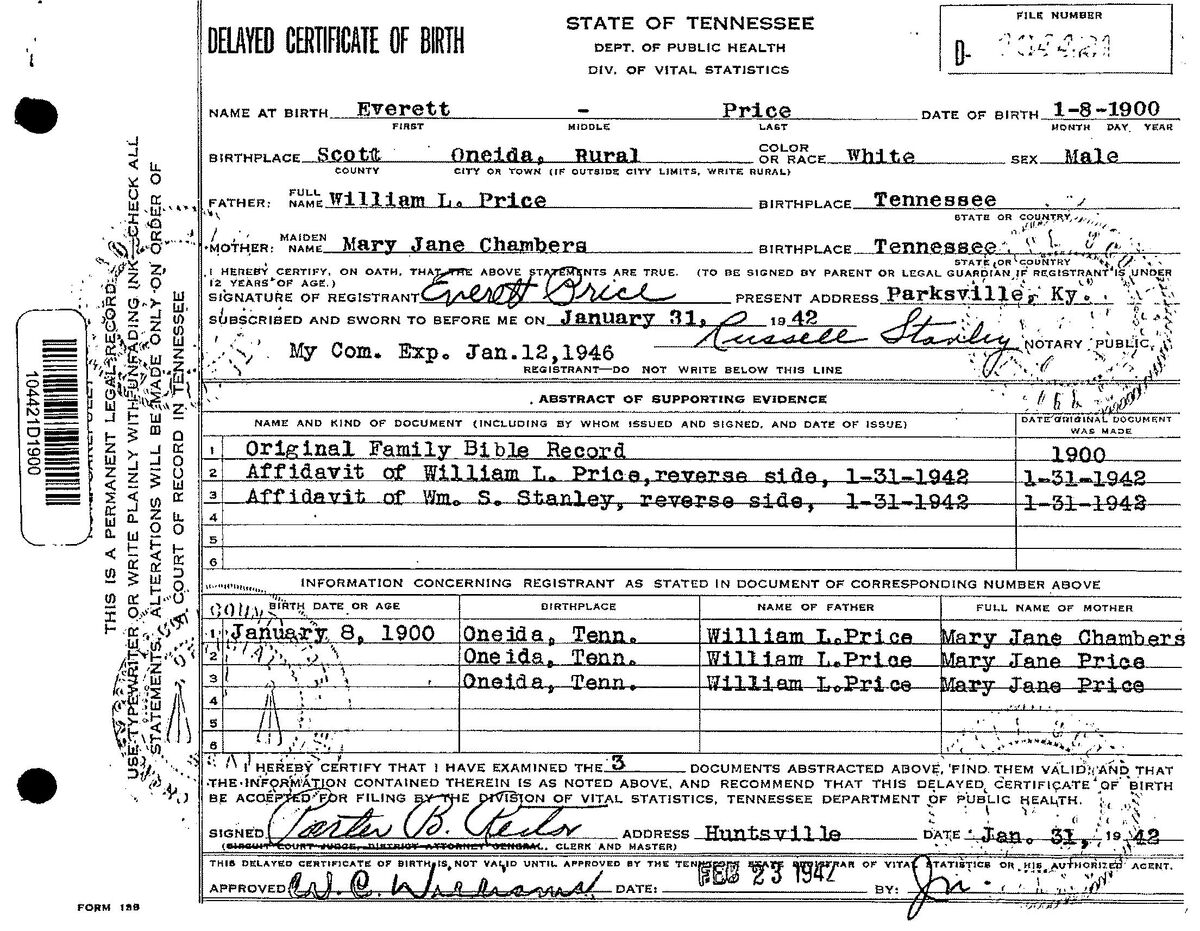 DELAYED CERTIFICATE OF BIRTH
STATE OF TENNESSEE
DEPT. OF PUBLIC HEALTH
DIV. OF VITAL STATISTICS
FILE NUMBER
D-
NAME AT BIRTH Everett - Price DATE OF BIRTH 1-8-1900
FIRST MIDDLE LAST MONTH DAY YEAR
BIRTHPLACE Scott Oneida, Rural COLOR OR RACE White SEX Male
COUNTY CITY OR TOWN (IF OUTSIDE CITY LIMITS, WRITE RURAL)
FATHER: FULL NAME William L. Price BIRTHPLACE Tennessee
STATE OR COUNTRY
MOTHER: MAIDEN NAME Mary Jane Chambers BIRTHPLACE Tennessee
STATE OR COUNTRY
I HEREBY CERTIFY, ON OATH, THAT THE ABOVE STATEMENTS ARE TRUE. (TO BE SIGNED BY PARENT OR LEGAL GUARDIAN IF REGISTRANT IS UNDER
12 YEARS OF AGE.)
SIGNATURE OF REGISTRANT Everett Price PRESENT ADDRESS Parksville, Ky.
SUBSCRIBED AND SWORN TO BEFORE ME ON January 31, 1942 Russell Stanley NOTARY PUBLIC,
My Com. Exp. Jan.12,1946
REGISTRANT—DO NOT WRITE BELOW THIS LINE
ABSTRACT OF SUPPORTING EVIDENCE
NAME AND KIND OF DOCUMENT (INCLUDING BY WHOM ISSUED AND SIGNED, AND DATE OF ISSUE) DATE ORIGINAL DOCUMENT WAS MADE
1 Original Family Bible Record 1900
2 Affidavit of William L. Price,reverse side, 1-31-1942 1-31-1942
3 Affidavit of Wm. S. Stanley, reverse side, 1-31-1942 1-31-1942
4
5
6
INFORMATION CONCERNING REGISTRANT AS STATED IN DOCUMENT OF CORRESPONDING NUMBER ABOVE
BIRTH DATE OR AGE BIRTHPLACE NAME OF FATHER FULL NAME OF MOTHER
1 January 8, 1900 Oneida, Tenn. William L.Price Mary Jane Chambers
2 Oneida, Tenn. William L.Price Mary Jane Price
3 Oneida, Tenn. William L.Price Mary Jane Price
4
5
6
I HEREBY CERTIFY THAT I HAVE EXAMINED THE 3 DOCUMENTS ABSTRACTED ABOVE, FIND THEM VALID; AND THAT
THE INFORMATION CONTAINED THEREIN IS AS NOTED ABOVE, AND RECOMMEND THAT THIS DELAYED CERTIFICATE OF BIRTH
BE ACCEPTED FOR FILING BY THE DIVISION OF VITAL STATISTICS, TENNESSEE DEPARTMENT OF PUBLIC HEALTH.
SIGNED Porter B. ADDRESS Huntsville DATE Jan. 31, 1942
(CIRCUIT COURT JUDGE, DISTRICT ATTORNEY GENERAL, CLERK AND MASTER)
THIS DELAYED CERTIFICATE OF BIRTH IS NOT VALID UNTIL APPROVED BY THE TENNESSEE STATE REGISTRAR OF VITAL STATISTICS OR HIS AUTHORIZED AGENT.
APPROVED W. C. Williams DATE: FEB 23 1942 BY:
FORM 128
104421D1900
THIS IS A PERMANENT LEGAL RECORD.
USE TYPEWRITER OR WRITE PLAINLY WITH UNFADING INK—CHECK ALL
STATEMENTS. ALTERATIONS WILL BE MADE ONLY ON ORDER OF
A COURT OF RECORD IN TENNESSEE